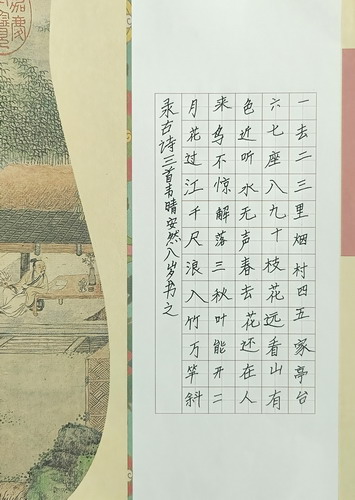 一去二三里烟村四五家亭台
六七座八九十枝花远看山有
色近听水无声春去花还在人
来鸟不惊解落三秋叶能开二
月花过江千尺浪入竹万竿斜
录古诗三首韦晴安然八岁书之
嘉慶